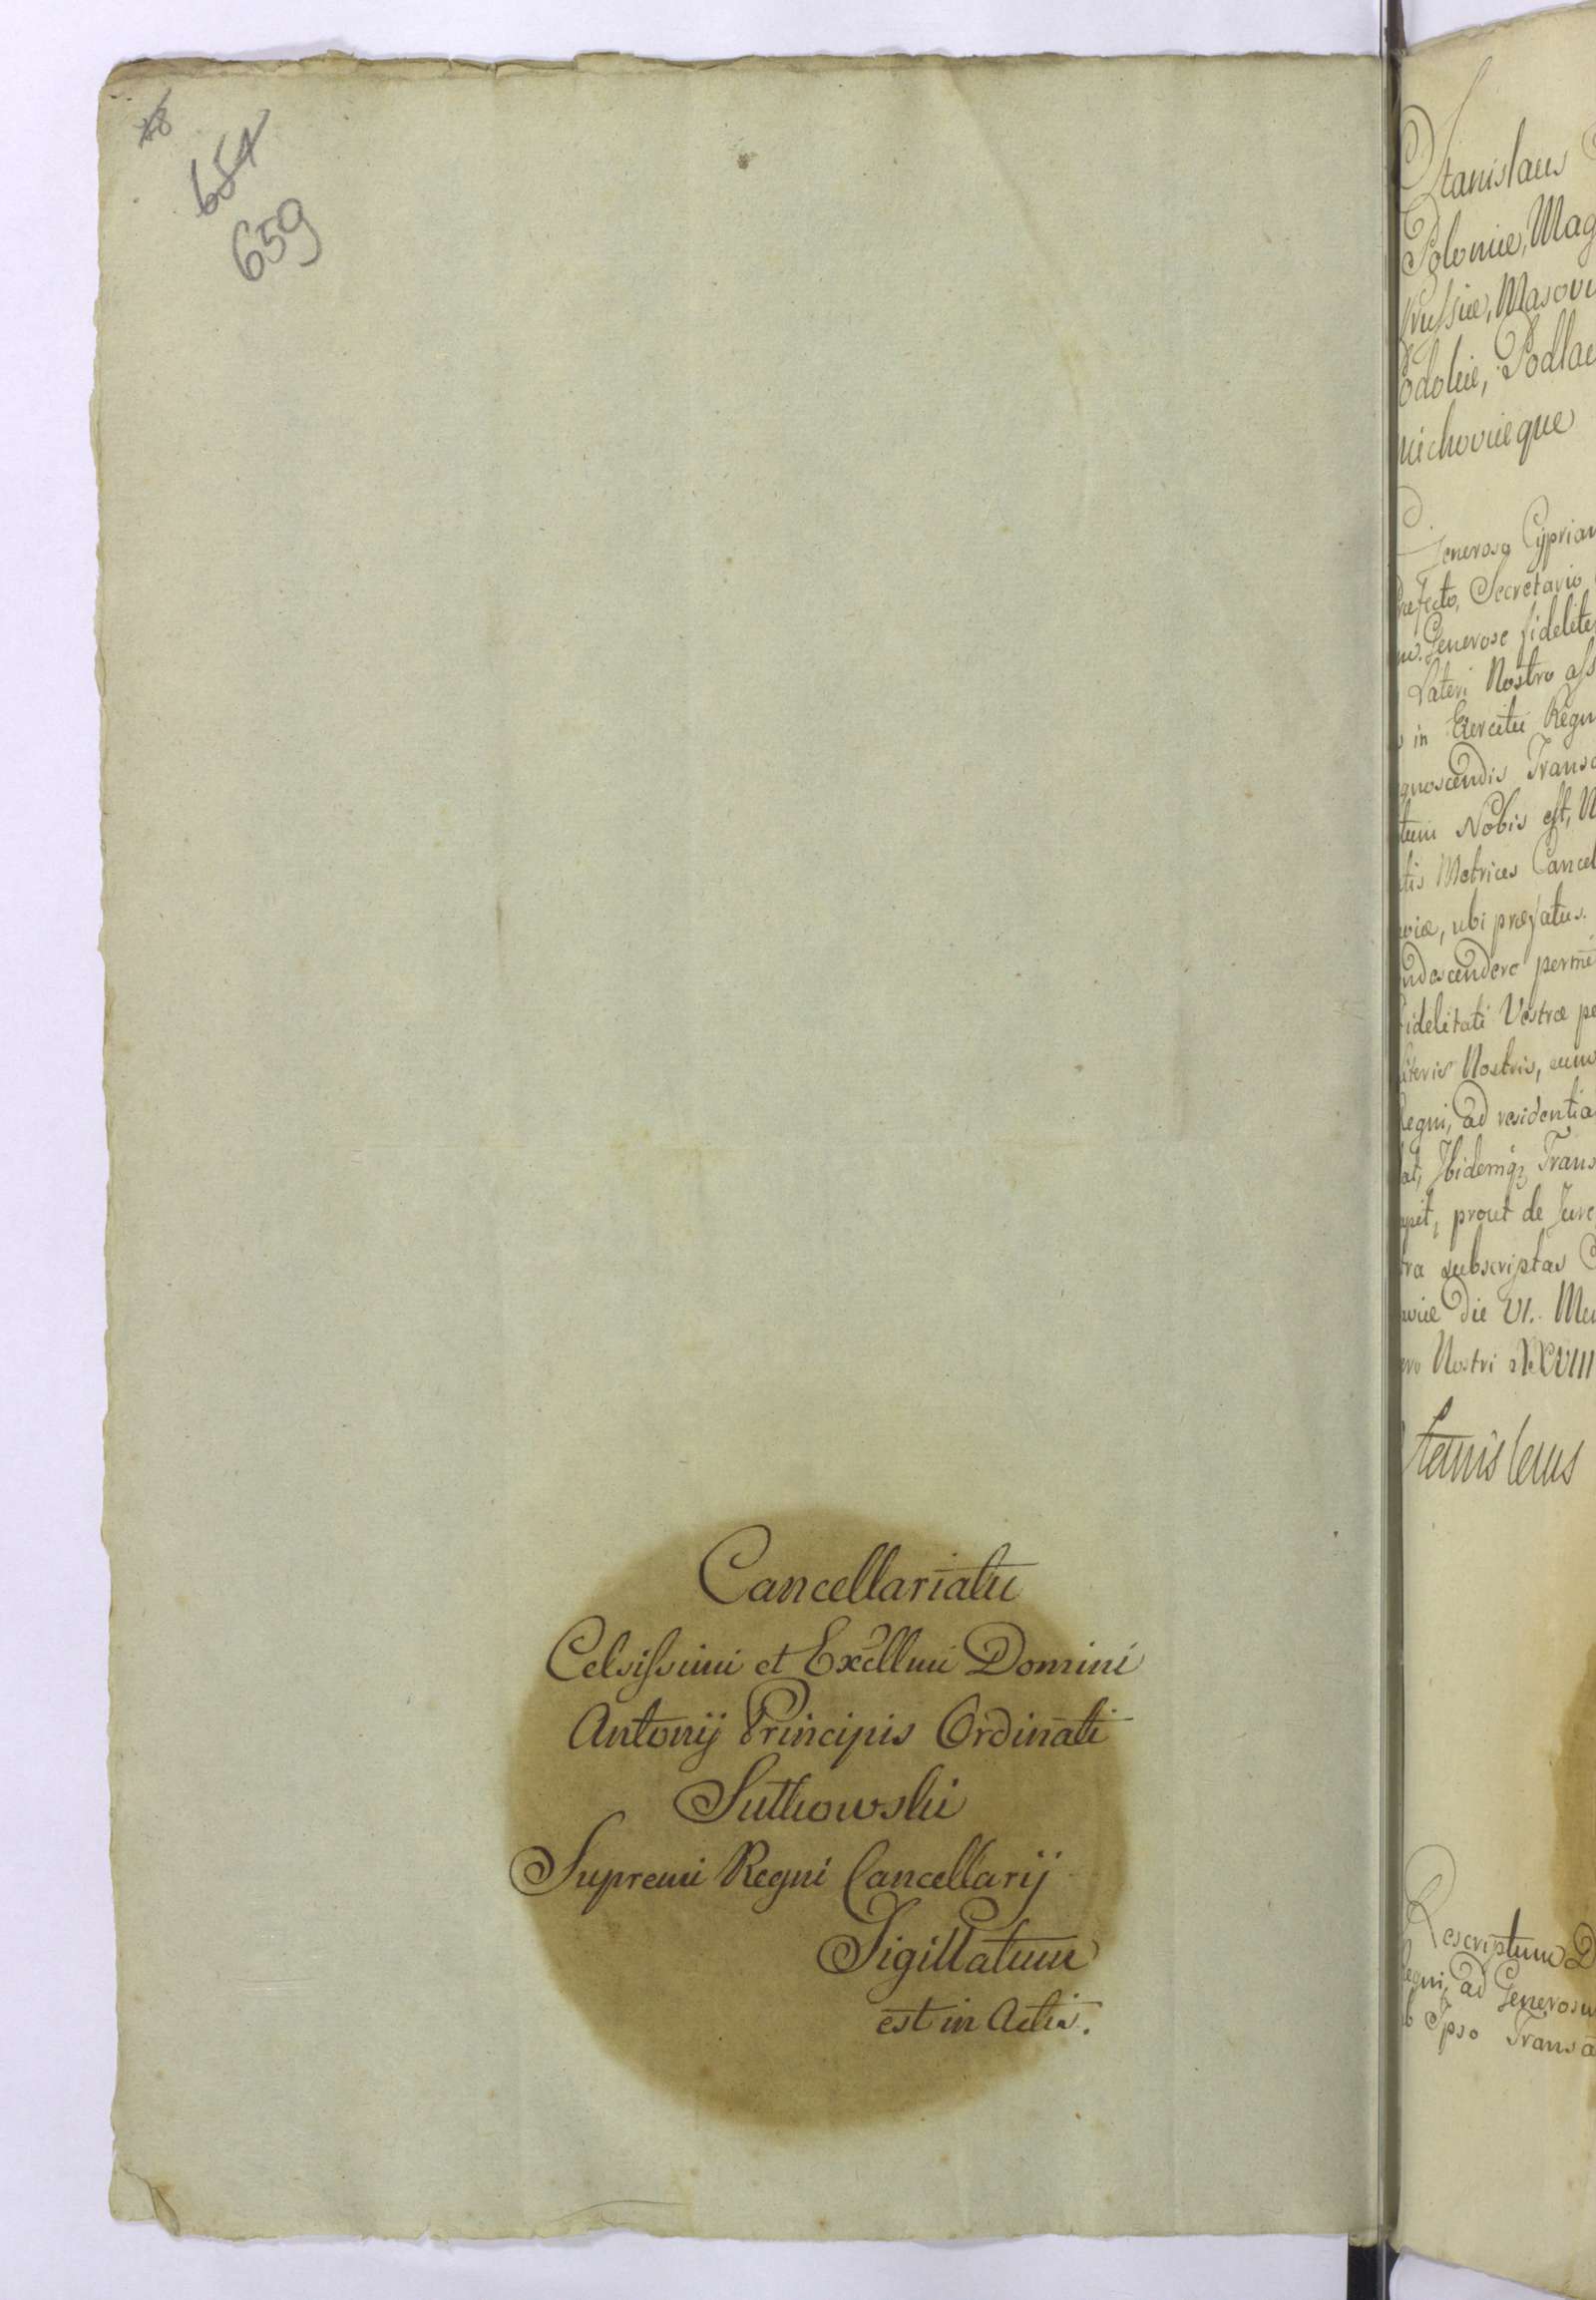 48
654
659
Cancellariatu
Celsissimi et Excellmi Domini
Antonij Principis Ordinati
Sułkowski
Supremi Regni Cancellarij
Sigillatum
est in Actis.
Stanislaus
Poloniæ, Mag
Prussiæ, Masovi
Podoliæ, Podlac
nichoviæque
Generoso Cyprian
Præfecto, Secretario
Generose fidelite
Lateri Nostro ass
in Exercitu Regn
gnoscendis Transa
tum Nobis est, 
tis Metrices Cancel
viæ, ubi præfatus.
ndescendere permi
Fidelitati Vestræ pe
Literis Nostris, eum
Regni, ad residentia
at, Ibidemq3 Trans
prout de Jure
ra subscriptas
viæ Die VI. Men
ero Nostri XXVIII
Stanislaus
Rescriptum
Regni, ad Generosu
b Ipso Transa